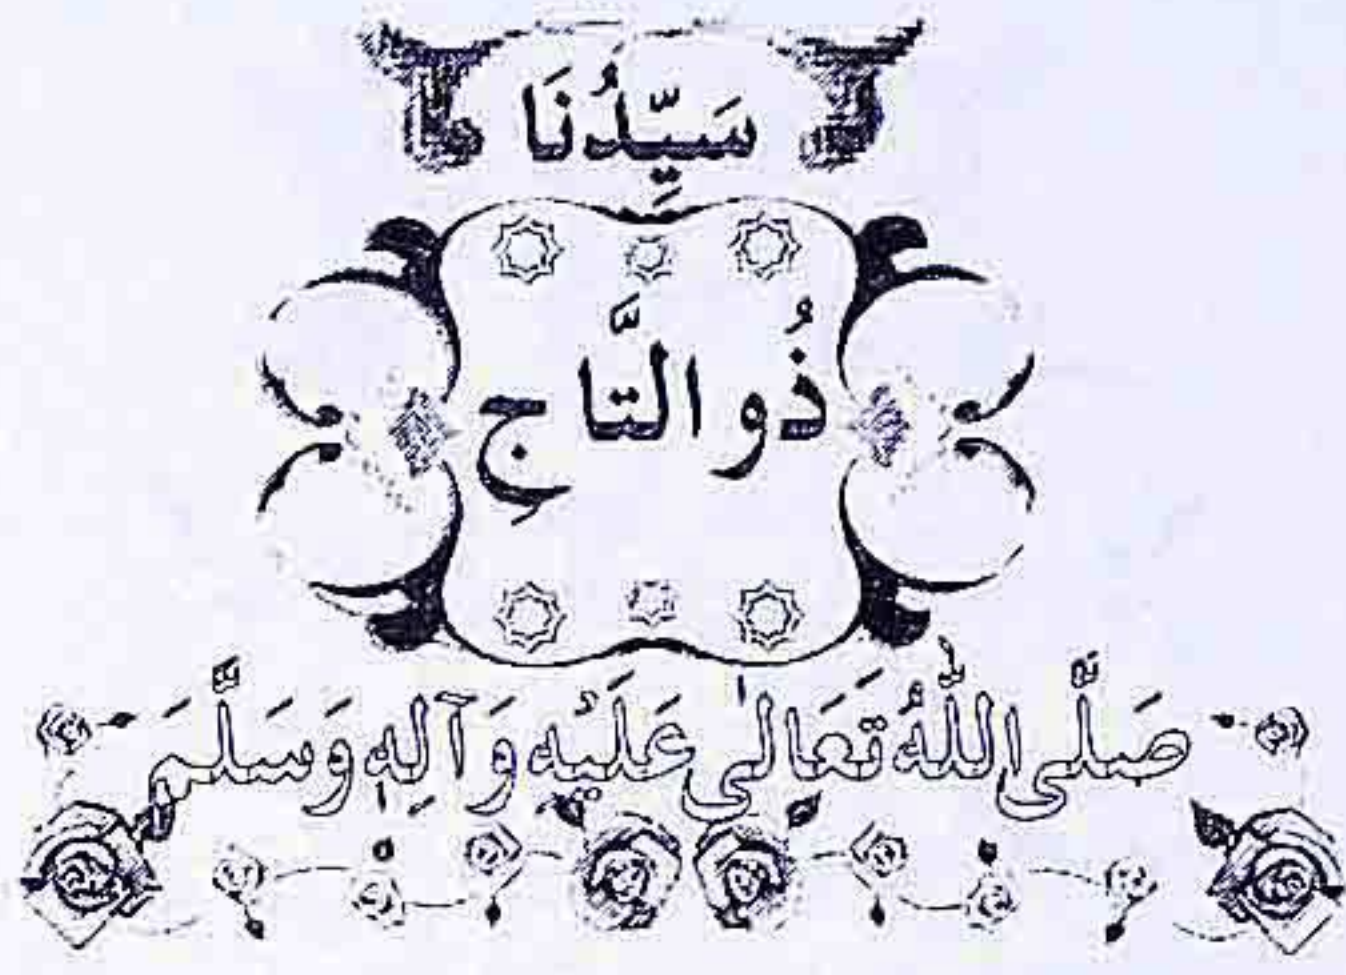 سَيِّدُنَا
ذُو التَّاجِ
صَلَّى اللّٰهُ تَعَالٰى عَلَيْهِ وَآلِهٖ وَسَلَّمَ